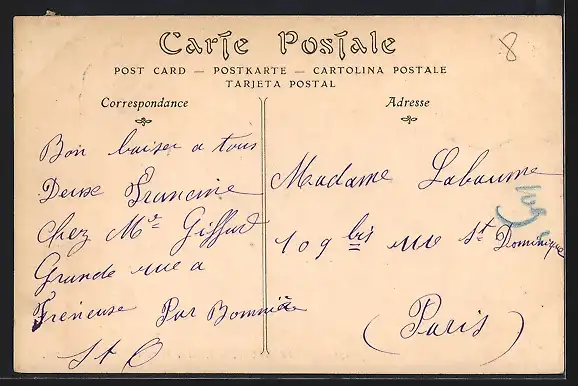 8
Carte Postale
POST CARD — POSTKARTE — CARTOLINA POSTALE
TARJETA POSTAL
Correspondance
Adresse
Bon baiser a tous
Deux Francine
Chez Mr Giffard
Grande rue a
Freneuse Par Bonnière
St O
Madame Labaume
109 bis rue St Dominique
(Paris)